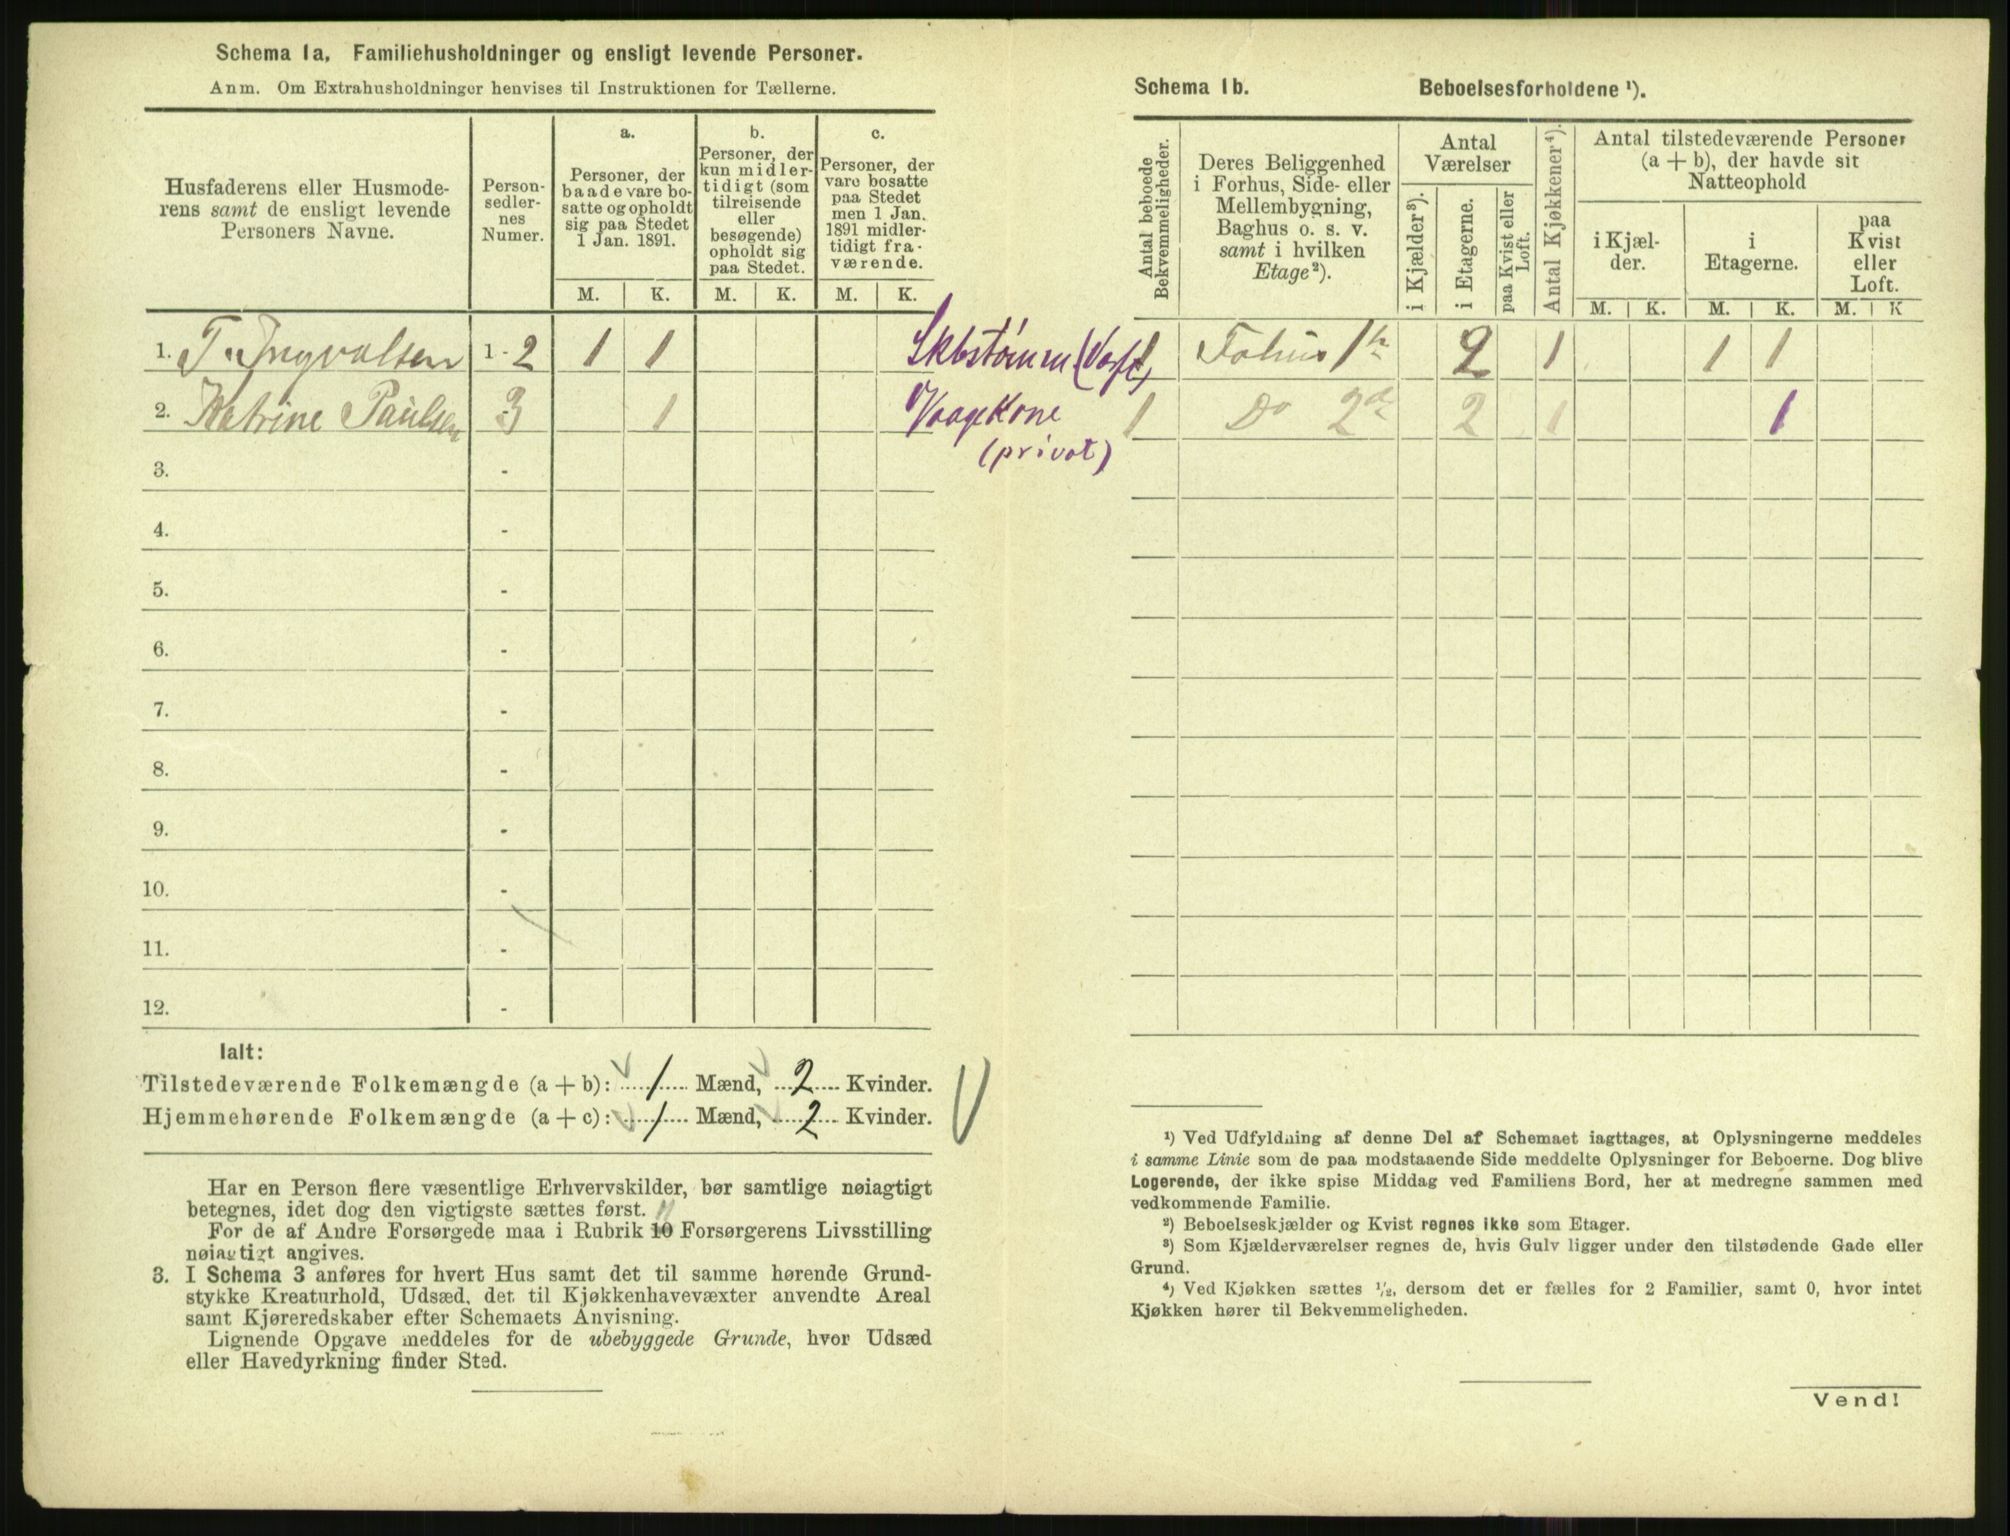 Schema 1a. Familiehusholdninger og ensligt levende Personer.
Anm. Om Extrahusholdninger henvises til Instruktionen for Tællerne.
Husfaderens eller Husmode-
rens samt de ensligt levende
Personers Navne.
Person-
sedler-
nes
Numer.
a.
Personer, der
baade vare bo-
satte og opholdt
sig paa Stedet
1 Jan. 1891.
b.
Personer, der
kun midler-
tidigt (som
tilreisende
eller
besøgende)
opholdt sig
paa Stedet.
c.
Personer, der
vare bosatte
paa Stedet
men 1 Jan.
1891 midler-
tidigt fra-
værende.
M. K. M. K. M. K.
1. T. Ingvalsen 1 - 2 1 1 Skbstømm (Værft)
2. Katrine Paulsen 3 1 Vaagekone
(privat)
3. -
4. -
5. -
6. -
7. -
8. -
9. -
10. -
11. -
12. -
Ialt:
Tilstedeværende Folkemængde (a + b): 1 Mænd, 2 Kvinder.
Hjemmehørende Folkemængde (a + c): 1 Mænd, 2 Kvinder.
Har en Person flere væsentlige Erhvervskilder, bør samtlige nøiagtigt
betegnes, idet dog den vigtigste sættes først.
11
For de af Andre Forsørgede maa i Rubrik 10 Forsørgerens Livsstilling
nøiagtigt angives.
3. I Schema 3 anføres for hvert Hus samt det til samme hørende Grund-
stykke Kreaturhold, Udsæd, det til Kjøkkenhavevæxter anvendte Areal
samt Kjøreredskaber efter Schemaets Anvisning.
Lignende Opgave meddeles for de ubebyggede Grunde, hvor Udsæd
eller Havedyrkning finder Sted.
Schema 1b. Beboelsesforholdene ¹).
Antal beboede
Bekvemmeligheder.
Deres Beliggenhed
i Forhus, Side- eller
Mellembygning,
Baghus o. s. v.
samt i hvilken
Etage ²).
Antal
Værelser
i Kjælder ³).
i Etagerne.
paa Kvist eller
Loft.
Antal Kjøkkener ⁴).
Antal tilstedeværende Personer
(a + b), der havde sit
Natteophold
i Kjæl-
der.
i
Etagerne.
paa
Kvist
eller
Loft.
M. K. M. K. M. K
1 Fohus 1ste 2 1 1 1
1 Do 2d 2 1 1
¹) Ved Udfyldning af denne Del af Schemaet iagttages, at Oplysningerne meddeles
i samme Linie som de paa modstaaende Side meddelte Oplysninger for Beboerne. Dog blive
Logerende, der ikke spise Middag ved Familiens Bord, her at medregne sammen med
vedkommende Familie.
²) Beboelseskjælder og Kvist regnes ikke som Etager.
³) Som Kjælderværelser regnes de, hvis Gulv ligger under den tilstødende Gade eller
Grund.
⁴) Ved Kjøkken sættes ½, dersom det er fælles for 2 Familier, samt 0, hvor intet
Kjøkken hører til Bekvemmeligheden.
Vend!